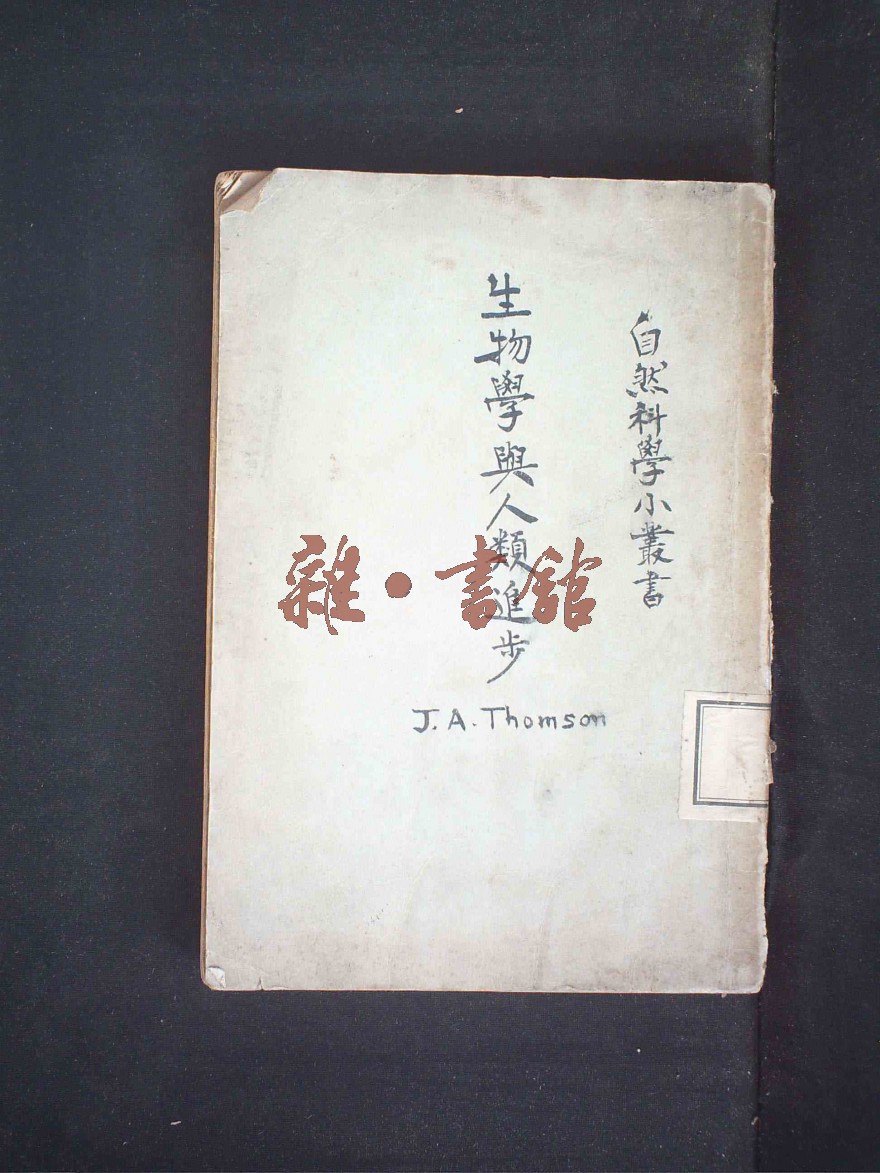 自然科學小叢書
生物學與人類進步
J.A.Thomson
雜·書舘